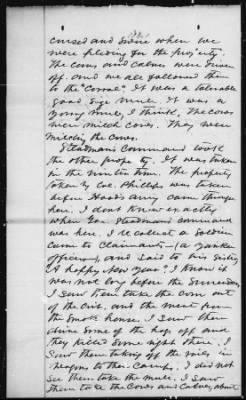 cursed and swore when we
were pleading for the property.
The cows and calves were driven
off. and we all followed them
to the "corral". It was a tolerable
good size mule. It was a
young mule, I think. The cows
were milch cows. They were
milking the cows.
Steadman's Command took
the other property. It was taken
in the winter time. The property
taken by Col. Phillips was taken
before Hood's army came through
here. I don't know exactly
when Gen. Steadman's command
was here. I recollect a soldier
came to Claimants—(a Yankee
officer), and said to his sister,
"A happy New Year." I know it
was not long before the Surrender.
I saw them take the corn out
of the crib, and the meat from
the smoke house. I saw them
drive some of the hogs off and
they killed some right there. I
saw them taking off the in
wagons to their Camp. I did not
see them take the mule. I saw
them take the cows and calves, about